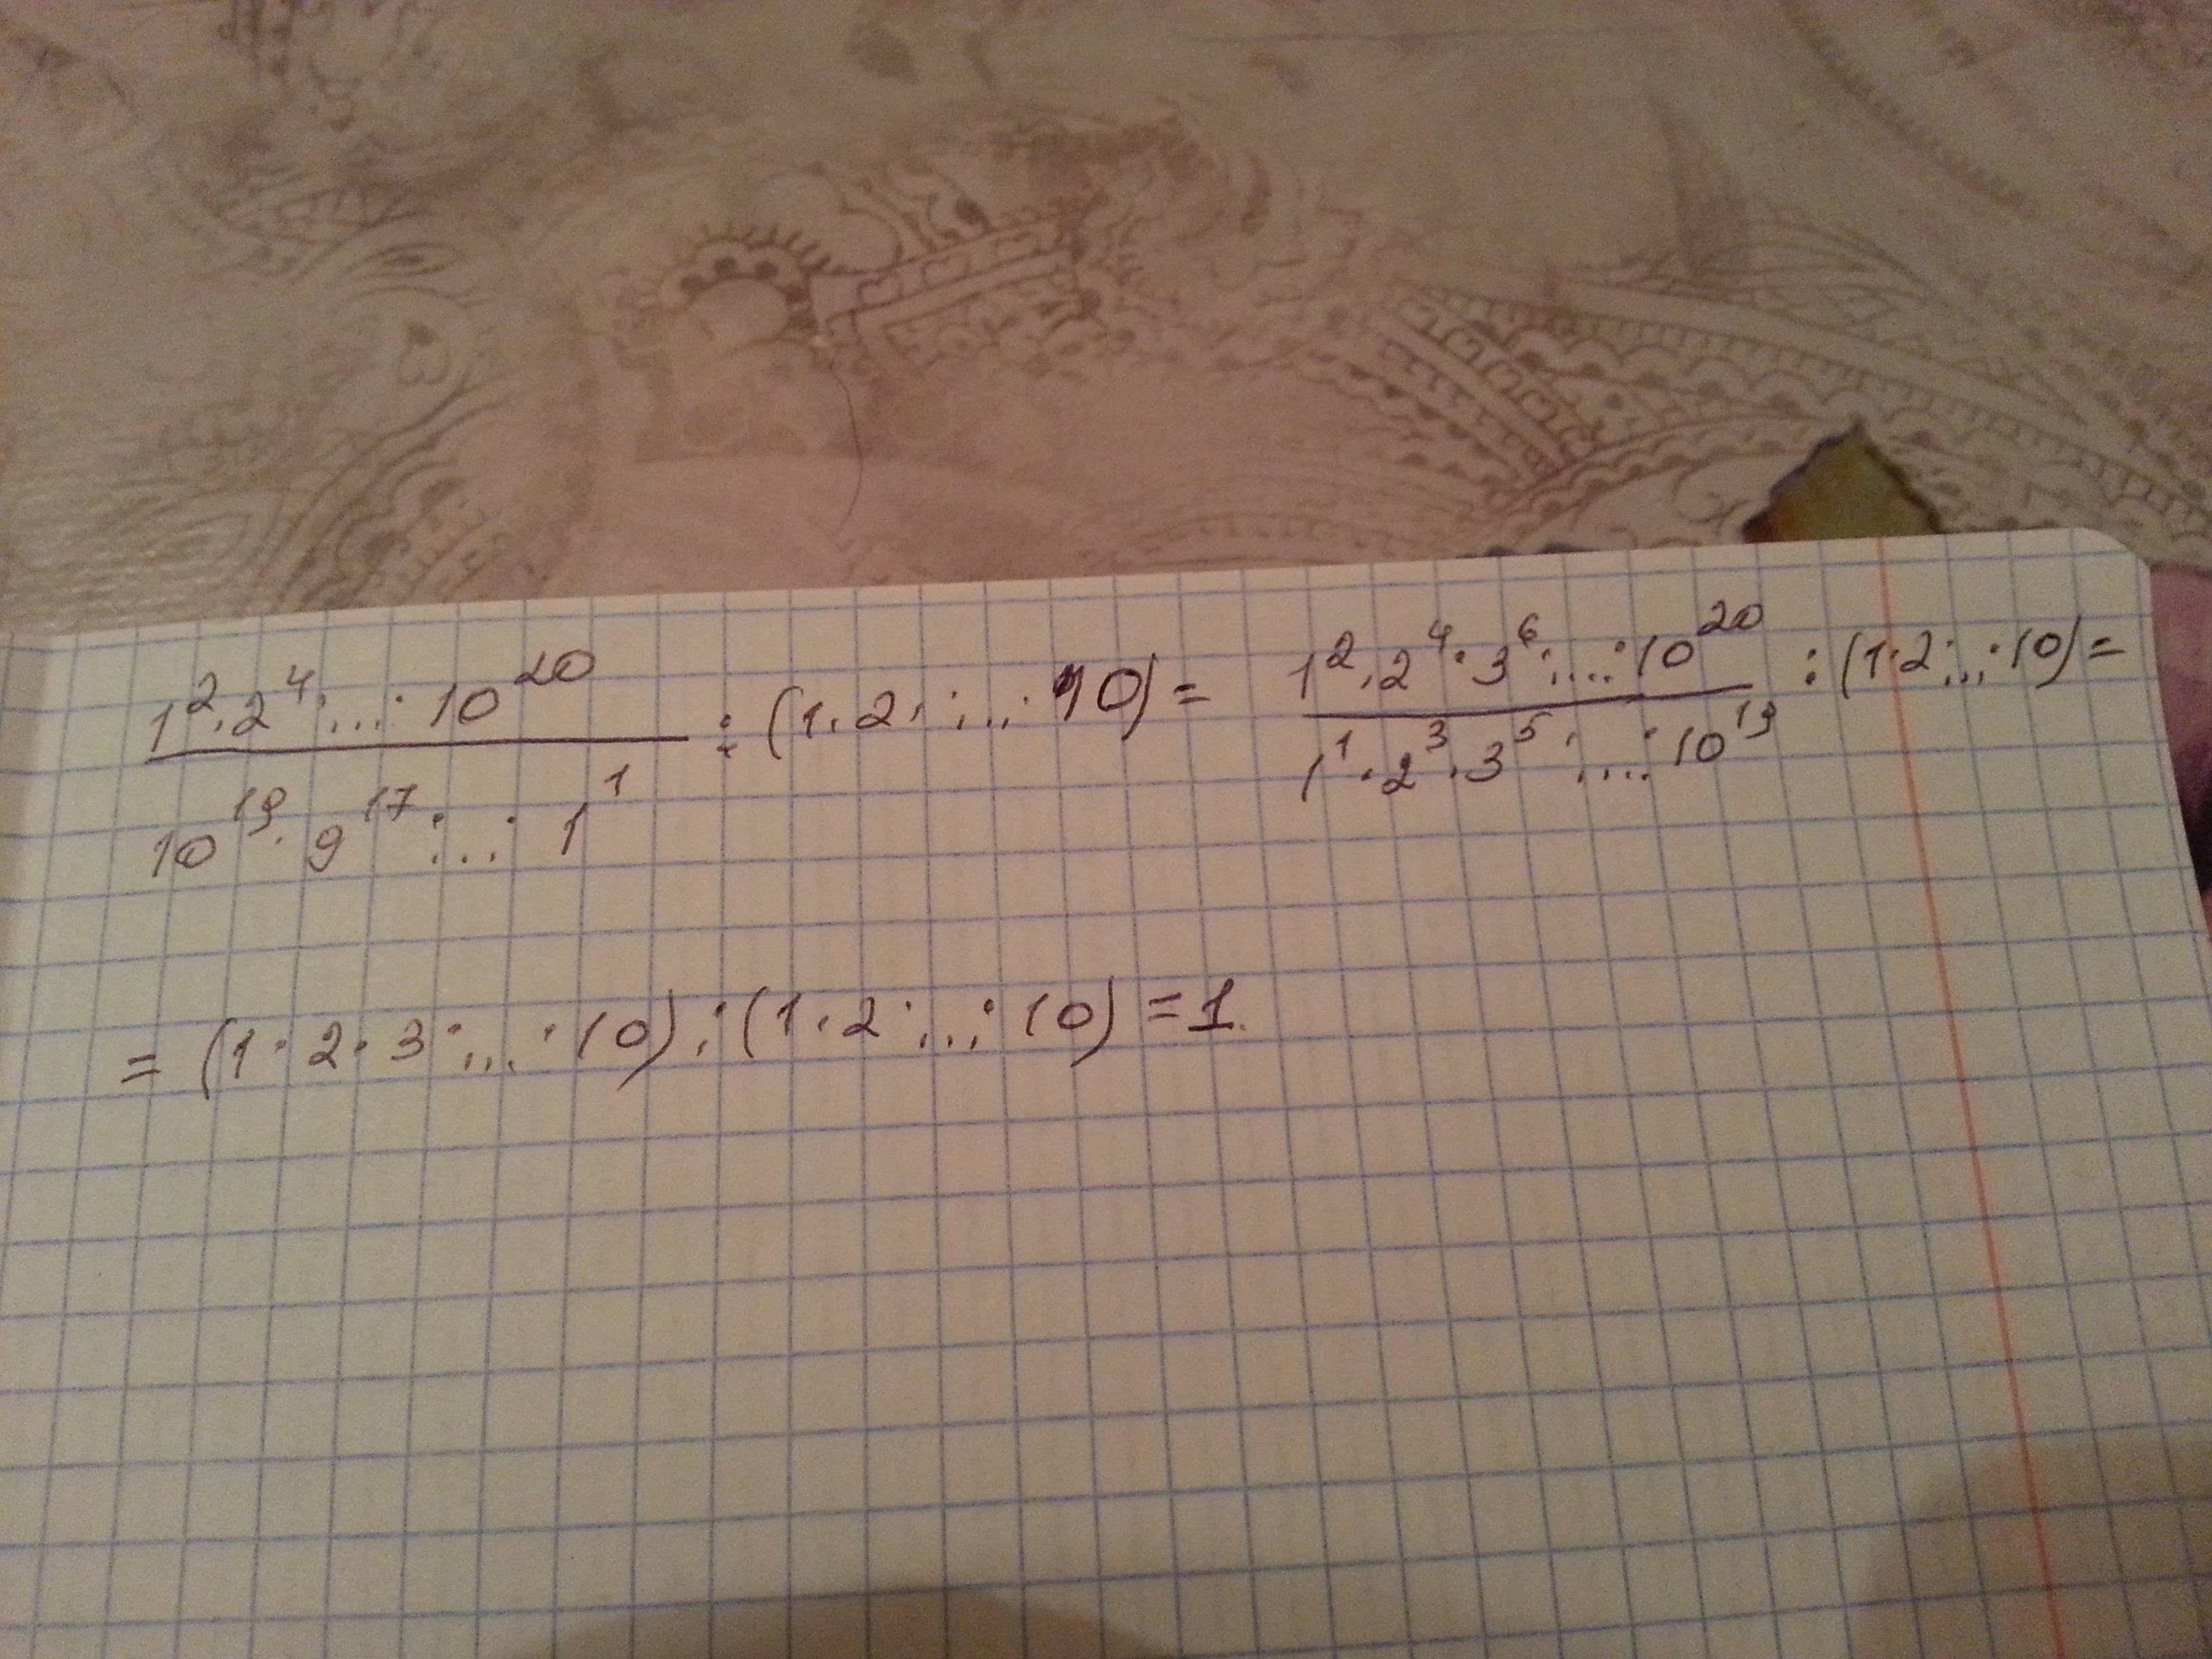 1²·2⁴·...·10²⁰ / 10¹⁹·9¹⁷·...·1¹ : (1·2·...·10) = 1²·2⁴·3⁶·...·10²⁰ / 1¹·2³·3⁵·...·10¹⁹ : (1·2·...·10) =
= (1·2·3·...·10) : (1·2·...·10) = 1.